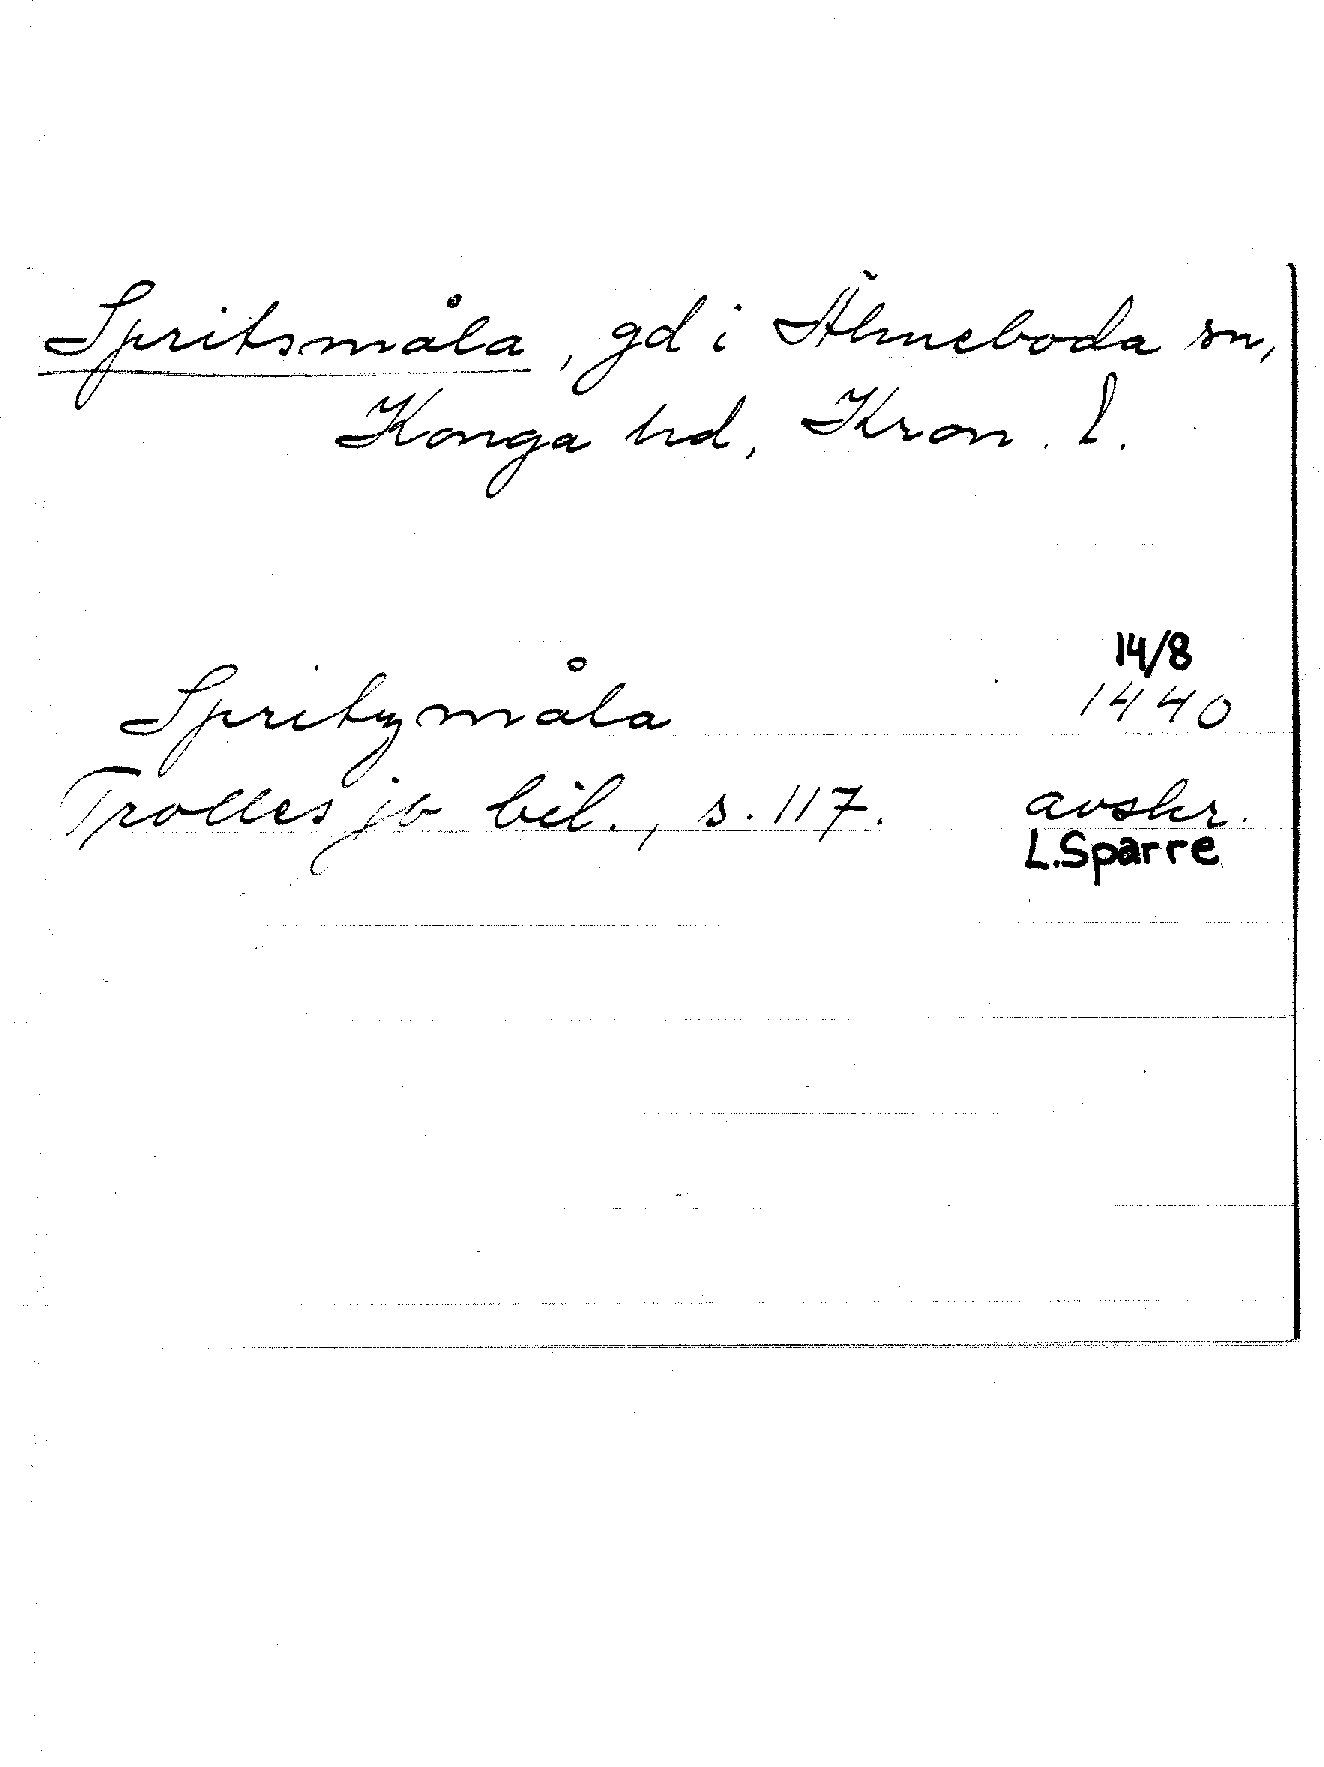 Spritsmåla, gd i Älmeboda sn,
Konga hd, Kron. l.
14/8
Spritzmåla 1440
Trolles jb bil., s. 117. avskr.
L.Sparre